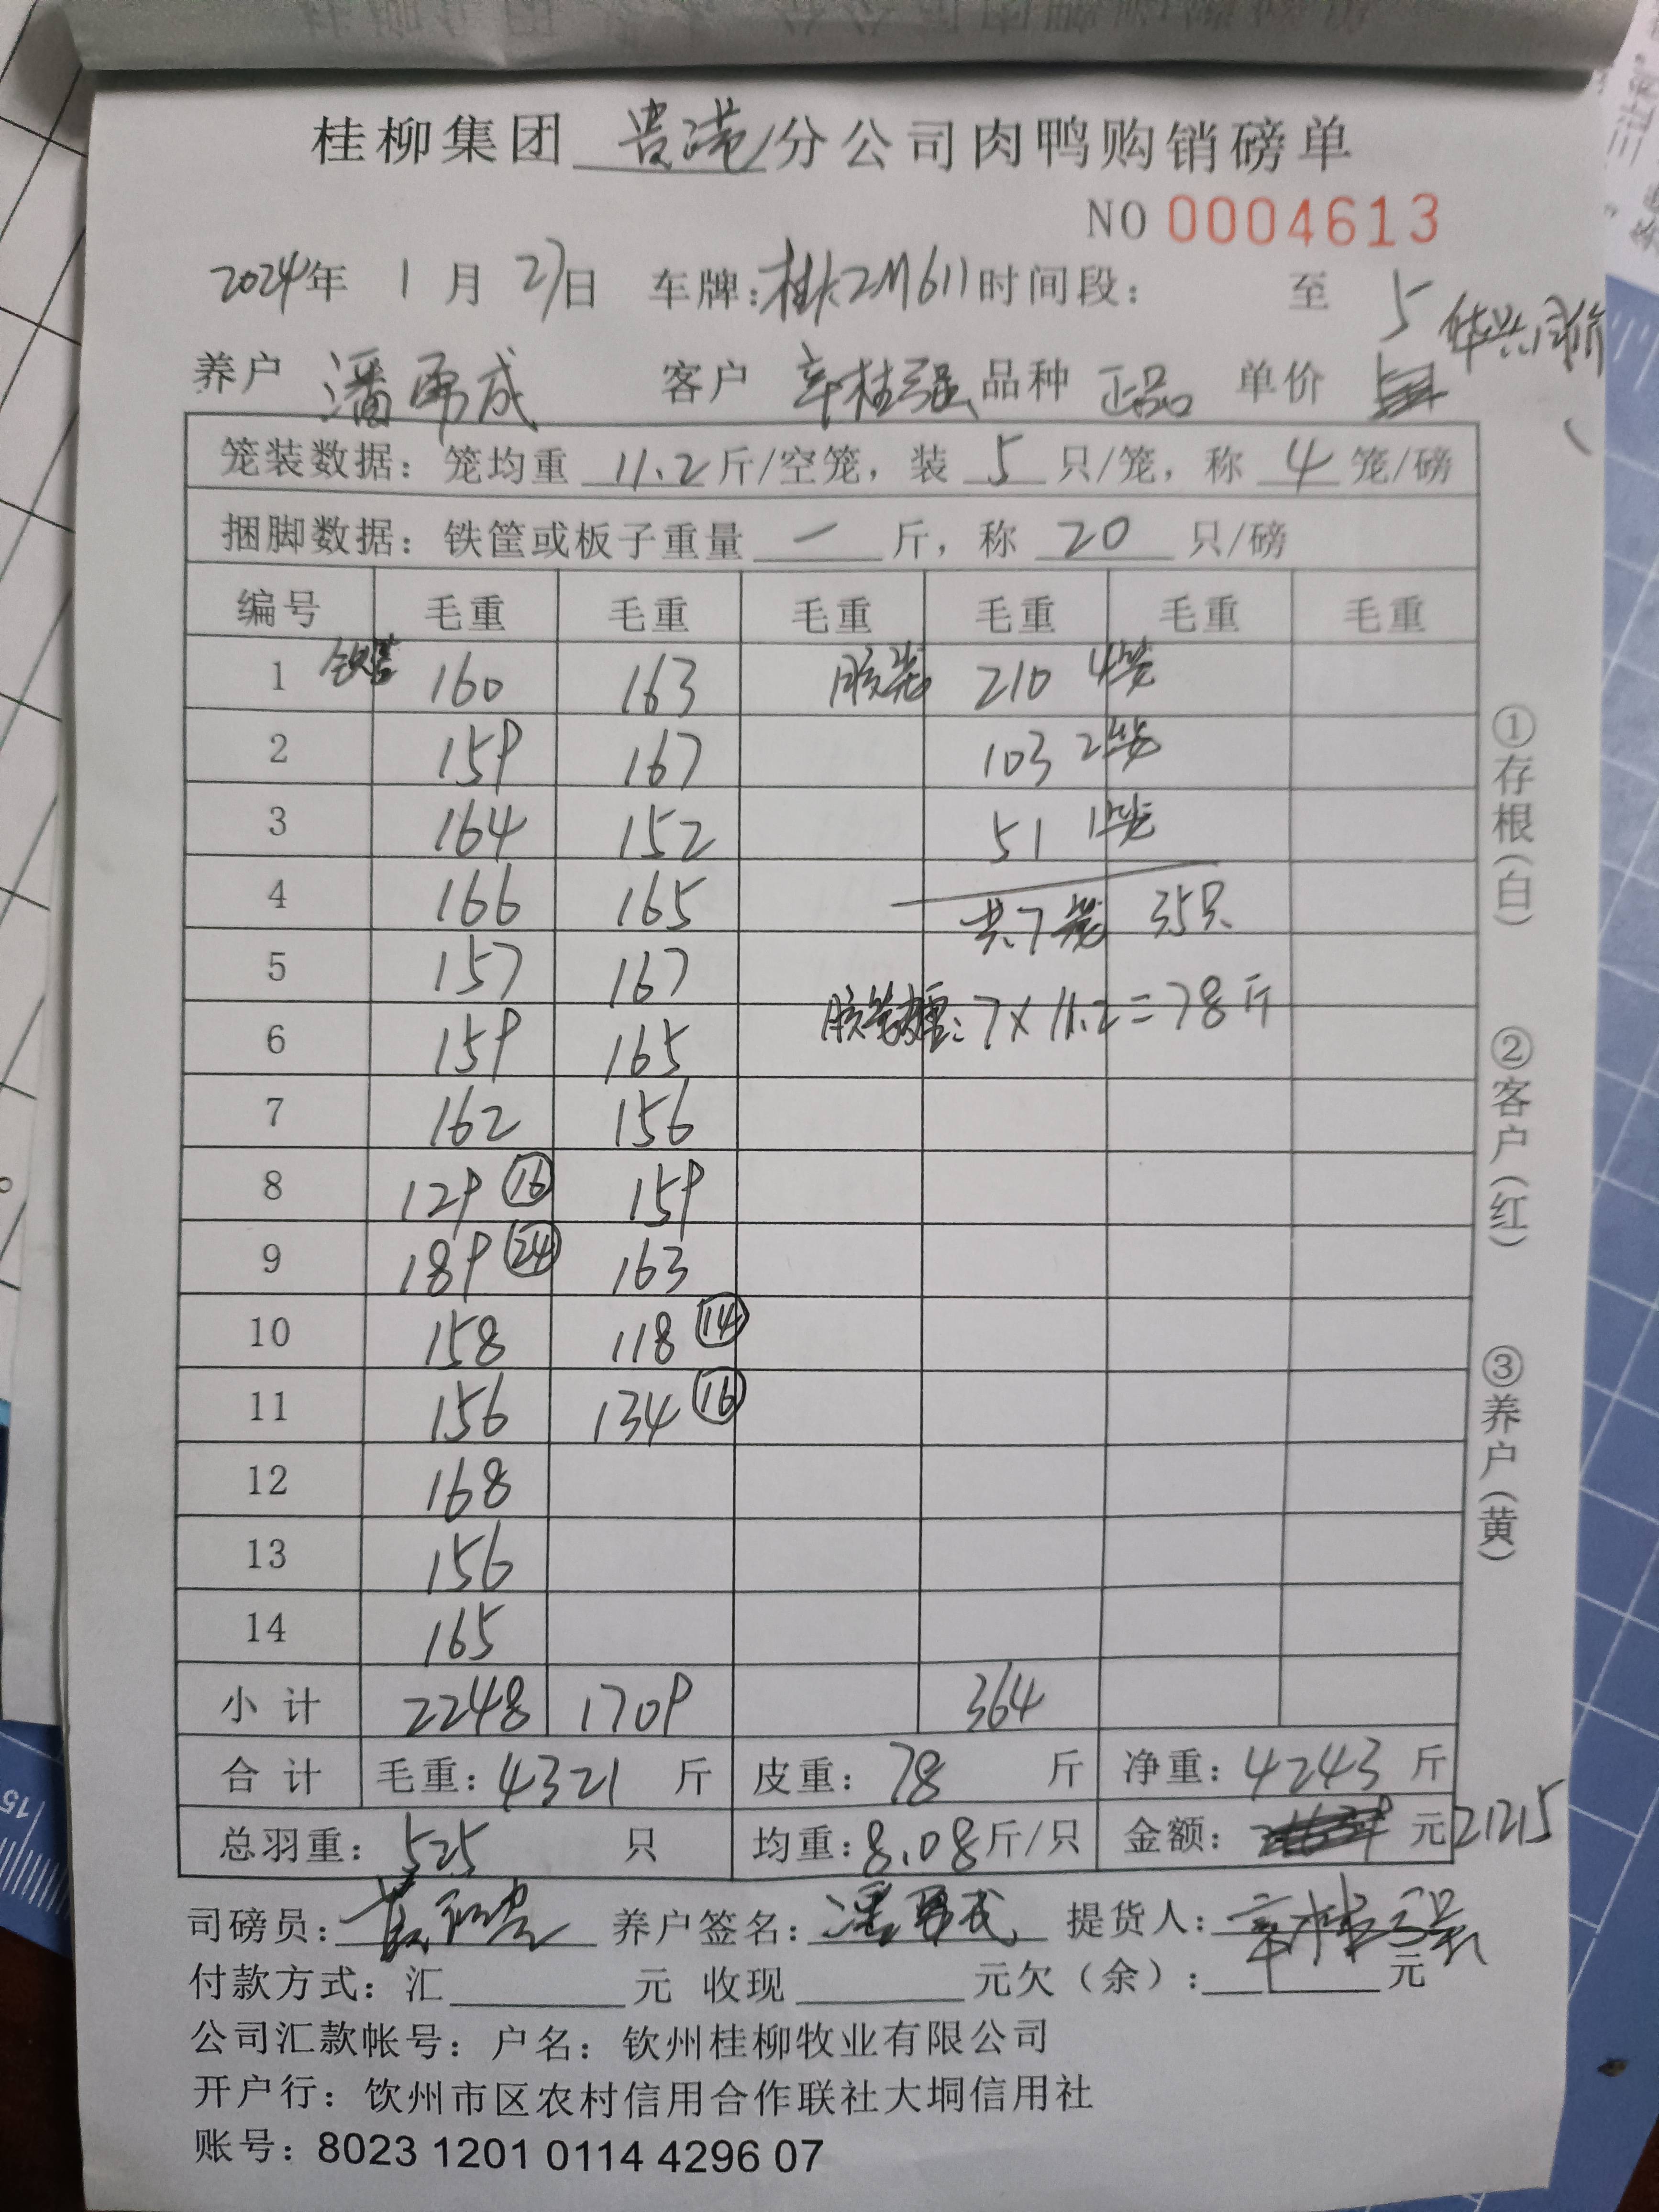 桂柳集团 贵港 分公司肉鸭购销磅单
NO 0004613
2024年 1月 27日 车牌: 时间段: 至 5 华兴同价
养户 潘勇成 客户 辛桂强 品种 正品 单价
笼装数据：笼均重 11.2 斤/空笼，装 5 只/笼，称 4 笼/磅
捆脚数据：铁筐或板子重量 一 斤，称 20 只/磅
编号 毛重 毛重 毛重 毛重 毛重 毛重
1 160 163 胶笼 210 4笼
2 159 167 103 2笼
3 164 152 51 1笼
4 166 165 共7笼 35只
5 157 167
6 159 165 7×11.2=78斤
7 162 156
8 129 ⑯ 159
9 189 ㉔ 163
10 158 118 ⑭
11 156 134 ⑯
12 168
13 156
14 165
小计 2248 1709 364
合计 毛重：4321 斤 皮重：78 斤 净重：4243 斤
总羽重：525 只 均重：8.08斤/只 金额： 元21215
司磅员： 养户签名：潘勇成 提货人：辛桂强
付款方式：汇 元 收现 元欠（余）： 元
公司汇款帐号：户名：钦州桂柳牧业有限公司
开户行：钦州市区农村信用合作联社大垌信用社
账号：8023 1201 0114 4296 07
①存根（白）
②客户（红）
③养户（黄）
15